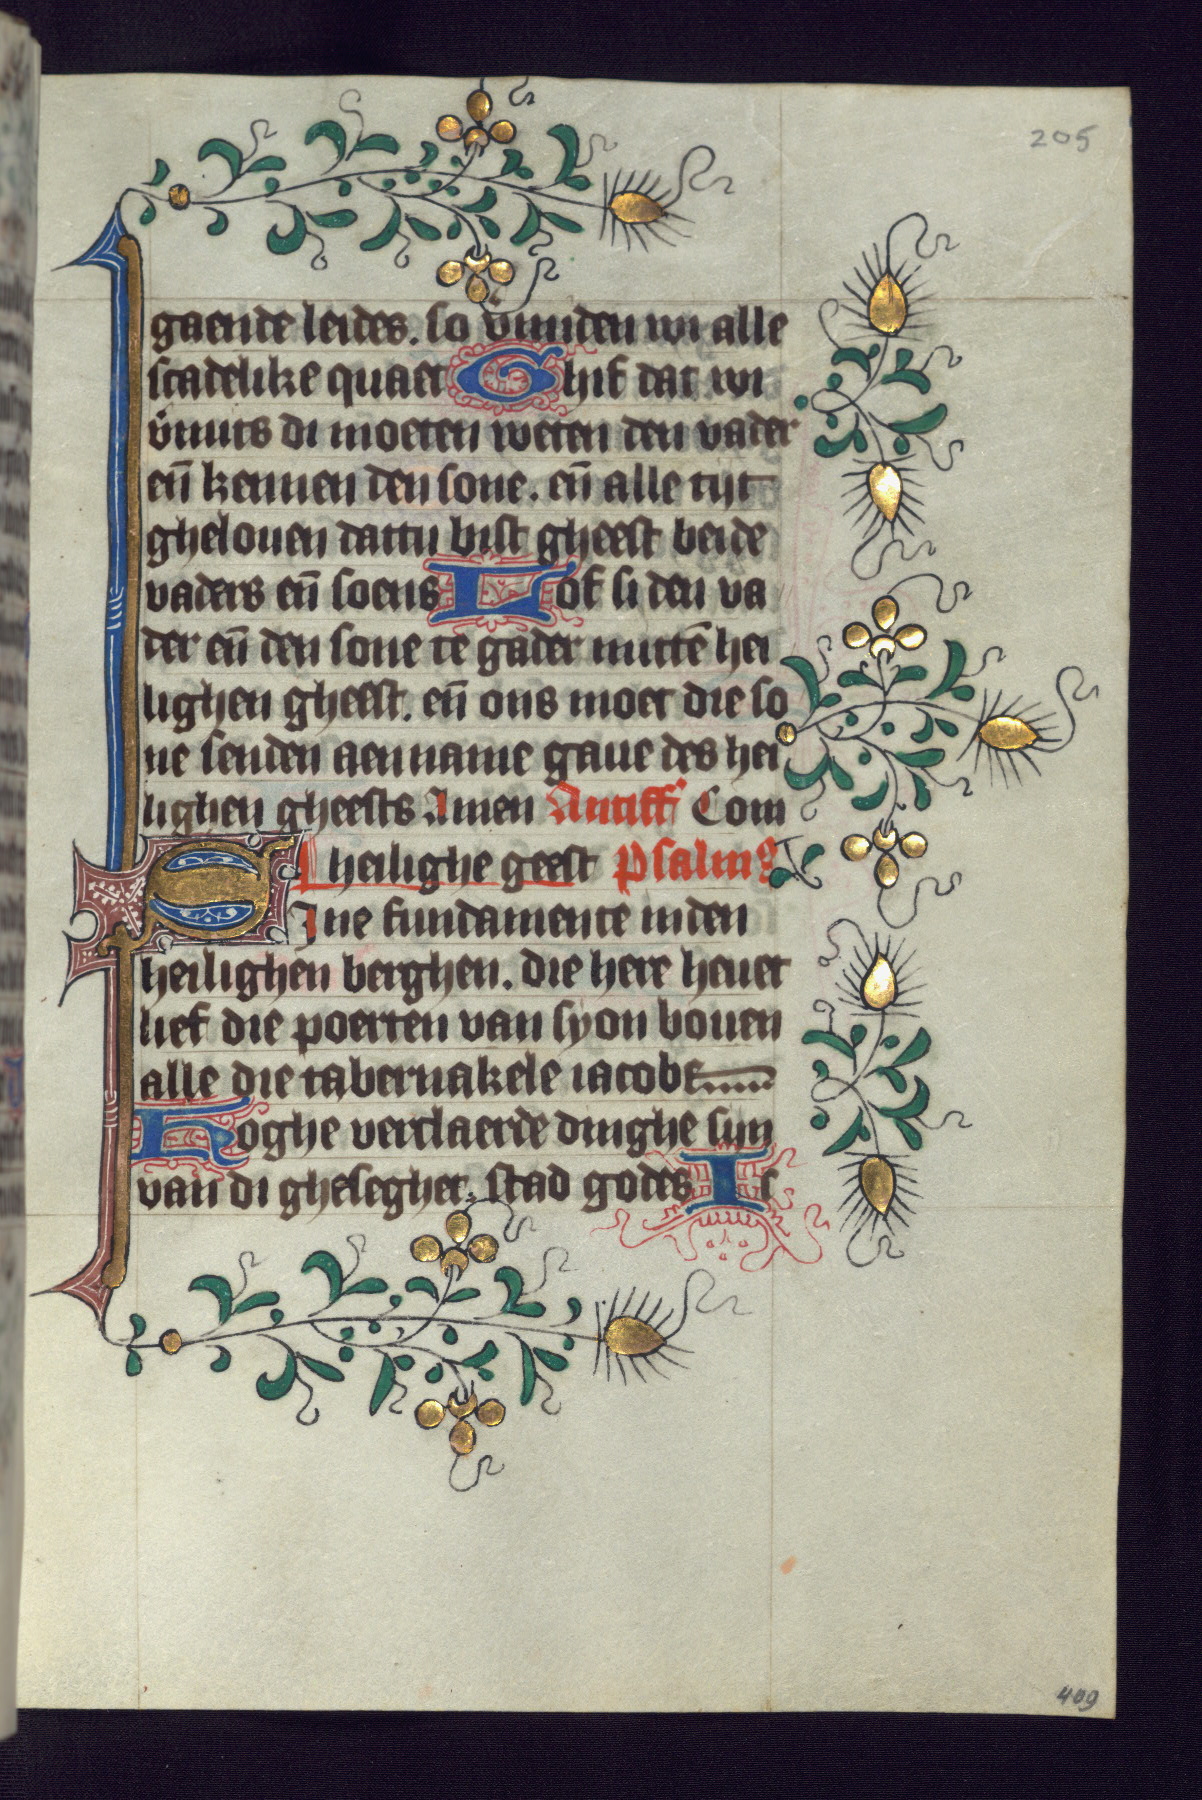 205
gaende leides. so vlinden wi alle
scadelike quaet Ghif dat wi
vmits di moeten weten den vader
eñ kennen den sone. eñ alle tijt
ghelouen dattu bist gheest beide
vaders eñ soens Lof si den va
der eñ den sone te gader mittē hei
lighen gheest. eñ ons moet die so
ne senden aenname gaue des hei
lighen gheests Amen Antiff' Com
heilighe geest Psalm9
Sine fundamente inden
heilighen berghen. die here heuet
lief die poerten van syon bouen
alle die tabernakele iacobs
Hoghe verclaerde dinghe sijn
van di gheseghet. stad godes Ic
409